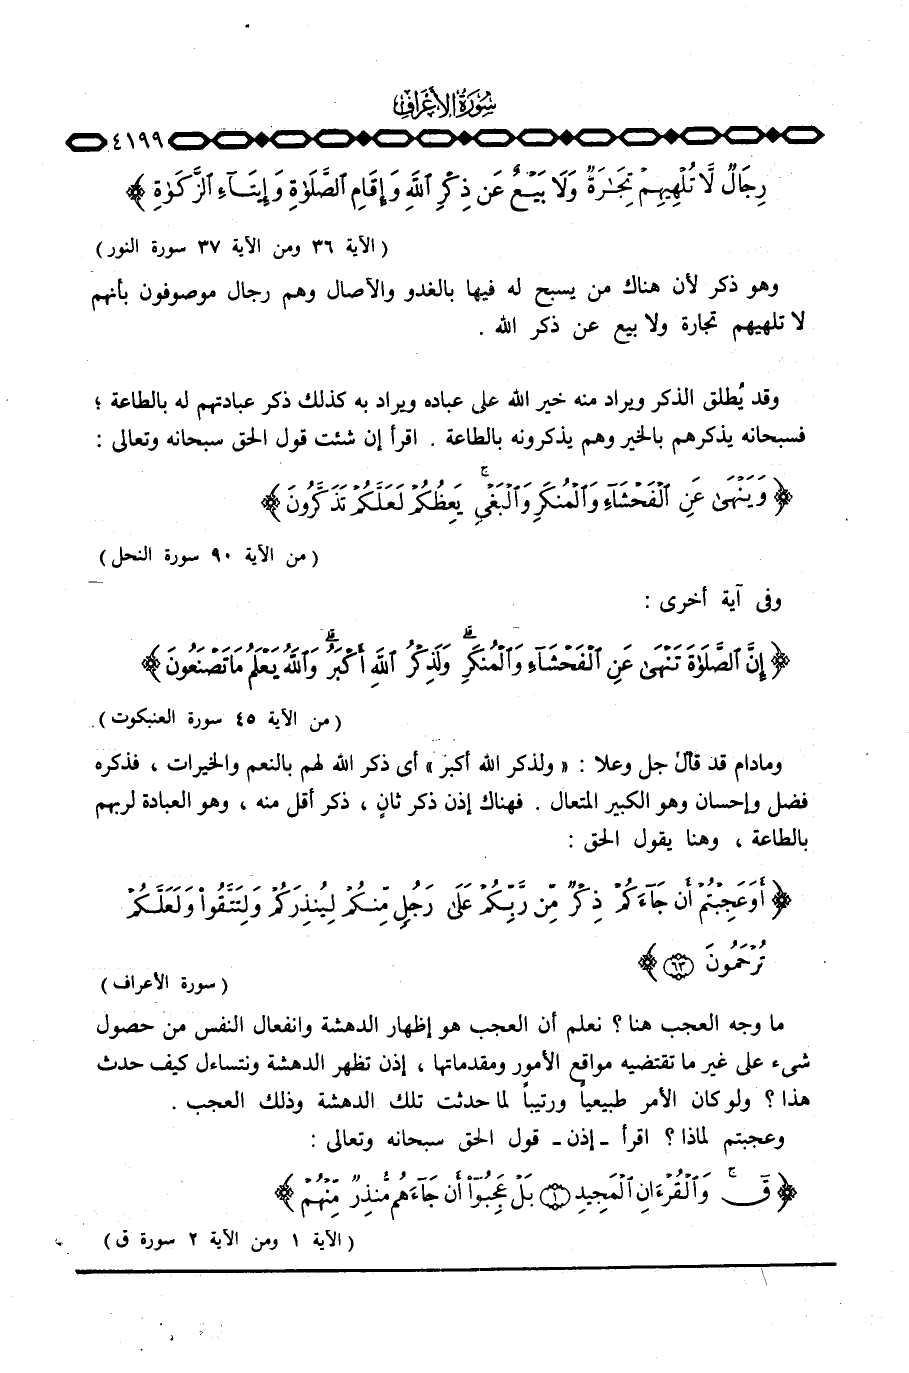 سورة الأعراف
٤١٩٩
رِجَالٌ لَّا تُلْهِيهِمْ تِجَٰرَةٌ وَلَا بَيْعٌ عَن ذِكْرِ ٱللَّهِ وَإِقَامِ ٱلصَّلَوٰةِ وَإِيتَآءِ ٱلزَّكَوٰةِ ﴾
( الآية ٣٦ ومن الآية ٣٧ سورة النور )
وهو ذكر لأن هناك من يسبح له فيها بالغدو والآصال وهم رجال موصوفون بأنهم
لا تلهيهم تجارة ولا بيع عن ذكر الله .
وقد يُطلق الذكر ويراد منه خير الله على عباده ويراد به كذلك ذكر عبادتهم له بالطاعة ؛
فسبحانه يذكرهم بالخير وهم يذكرونه بالطاعة . اقرأ إن شئت قول الحق سبحانه وتعالى :
﴿ وَيَنْهَىٰ عَنِ ٱلْفَحْشَآءِ وَٱلْمُنكَرِ وَٱلْبَغْىِ ۚ يَعِظُكُمْ لَعَلَّكُمْ تَذَكَّرُونَ ﴾
( من الآية ٩٠ سورة النحل )
وفى آية أخرى :
﴿ إِنَّ ٱلصَّلَوٰةَ تَنْهَىٰ عَنِ ٱلْفَحْشَآءِ وَٱلْمُنكَرِ ۗ وَلَذِكْرُ ٱللَّهِ أَكْبَرُ ۗ وَٱللَّهُ يَعْلَمُ مَا تَصْنَعُونَ ﴾
( من الآية ٤٥ سورة العنكبوت ) .
ومادام قد قال جل وعلا : « ولذكر الله أكبر » أى ذكر الله لهم بالنعم والخيرات ، فذكره
فضل وإحسان وهو الكبير المتعال . فهناك إذن ذكر ثانٍ ، ذكر أقل منه ، وهو العبادة لربهم
بالطاعة ، وهنا يقول الحق :
﴿ أَوَعَجِبْتُمْ أَن جَآءَكُمْ ذِكْرٌ مِّن رَّبِّكُمْ عَلَىٰ رَجُلٍ مِّنكُمْ لِيُنذِرَكُمْ وَلِتَتَّقُوا۟ وَلَعَلَّكُمْ
تُرْحَمُونَ ٦٣ ﴾
( سورة الأعراف )
ما وجه العجب هنا ؟ نعلم أن العجب هو إظهار الدهشة وانفعال النفس من حصول
شىء على غير ما تقتضيه مواقع الأمور ومقدماتها ، إذن تظهر الدهشة ونتساءل كيف حدث
هذا ؟ ولو كان الأمر طبيعياً ورتيباً لما حدثت تلك الدهشة وذلك العجب .
وعجبتم لماذا ؟ اقرأ ـ إذن ـ قول الحق سبحانه وتعالى :
﴿ قٓ ۚ وَٱلْقُرْءَانِ ٱلْمَجِيدِ ١ بَلْ عَجِبُوٓا۟ أَن جَآءَهُم مُّنذِرٌ مِّنْهُمْ ﴾
( الآية ١ ومن الآية ٢ سورة ق )